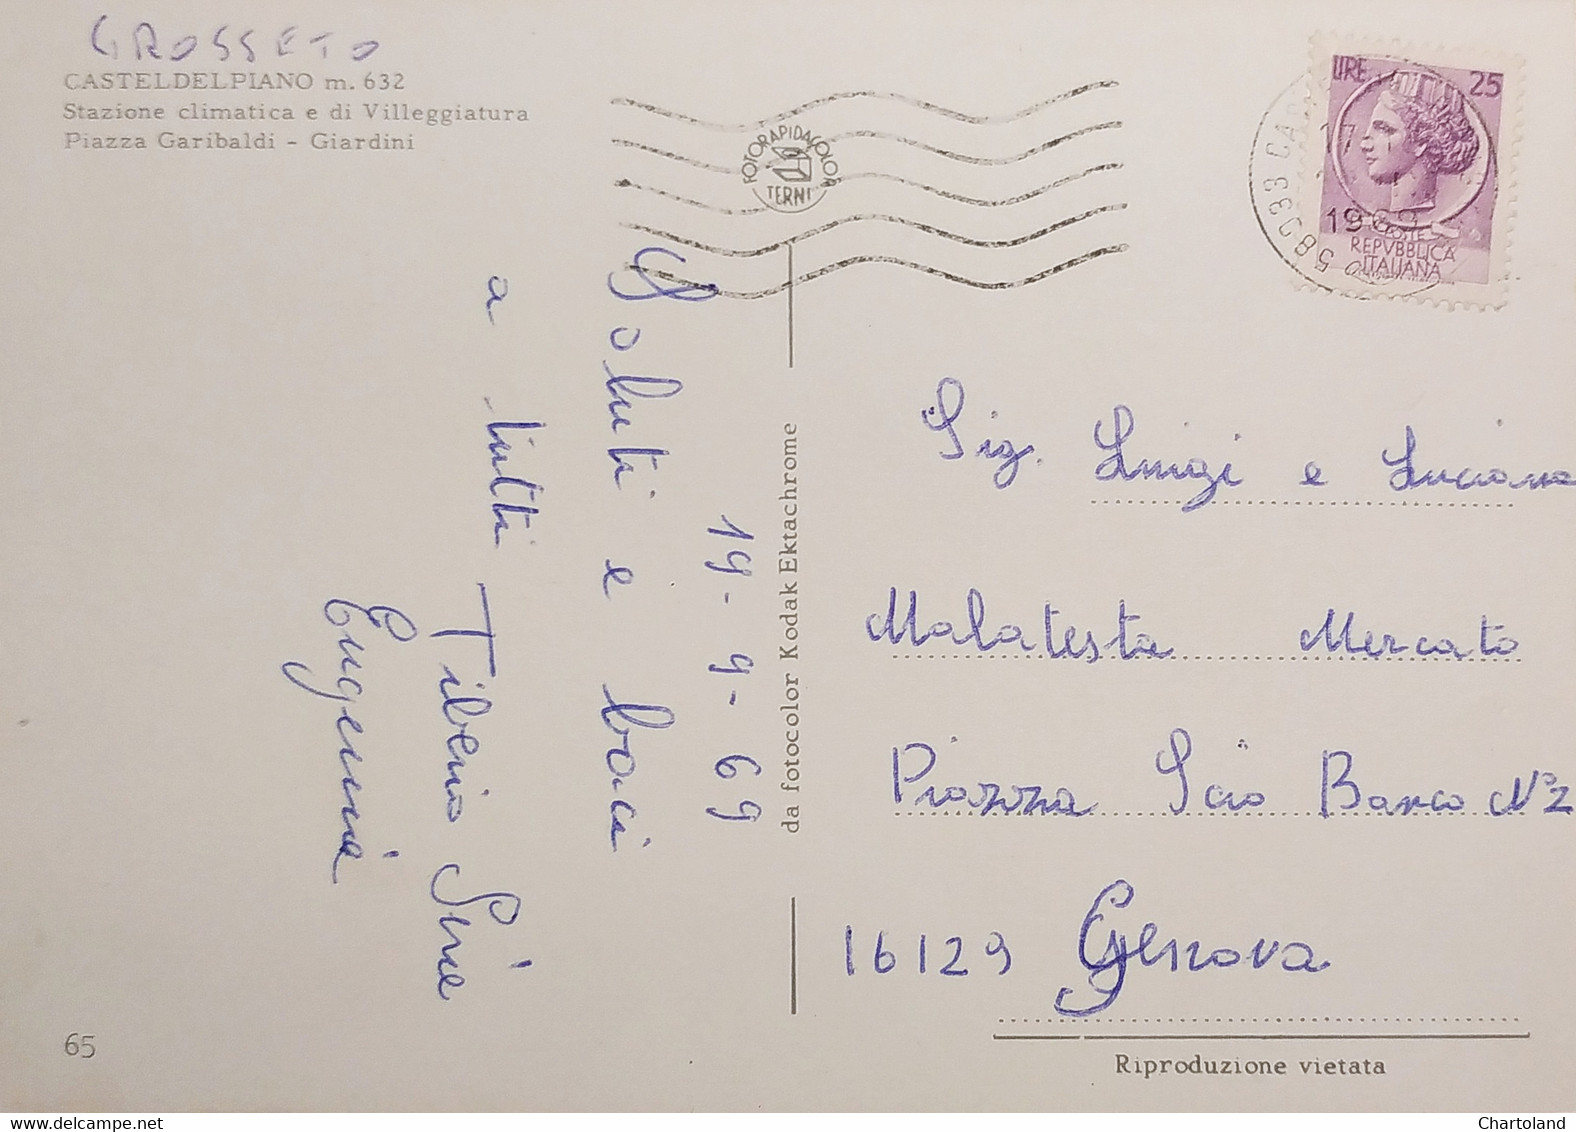 GROSSETO
CASTELDELPIANO m. 632
Stazione climatica e di Villeggiatura
Piazza Garibaldi - Giardini
FOTORAPIDACOLOR
TERNI
LIRE 25
REPVBBLICA
ITALIANA
58033 CAS
17
1969
19-9-69
Saluti e baci
a tutti Tiberio
Eugenia
da fotocolor Kodak Ektachrome
Sig. Luigi e Luciana
Malatesta Mercato
Piazza Scio Banco N°2
16129 Genova
65
Riproduzione vietata
Chartoland